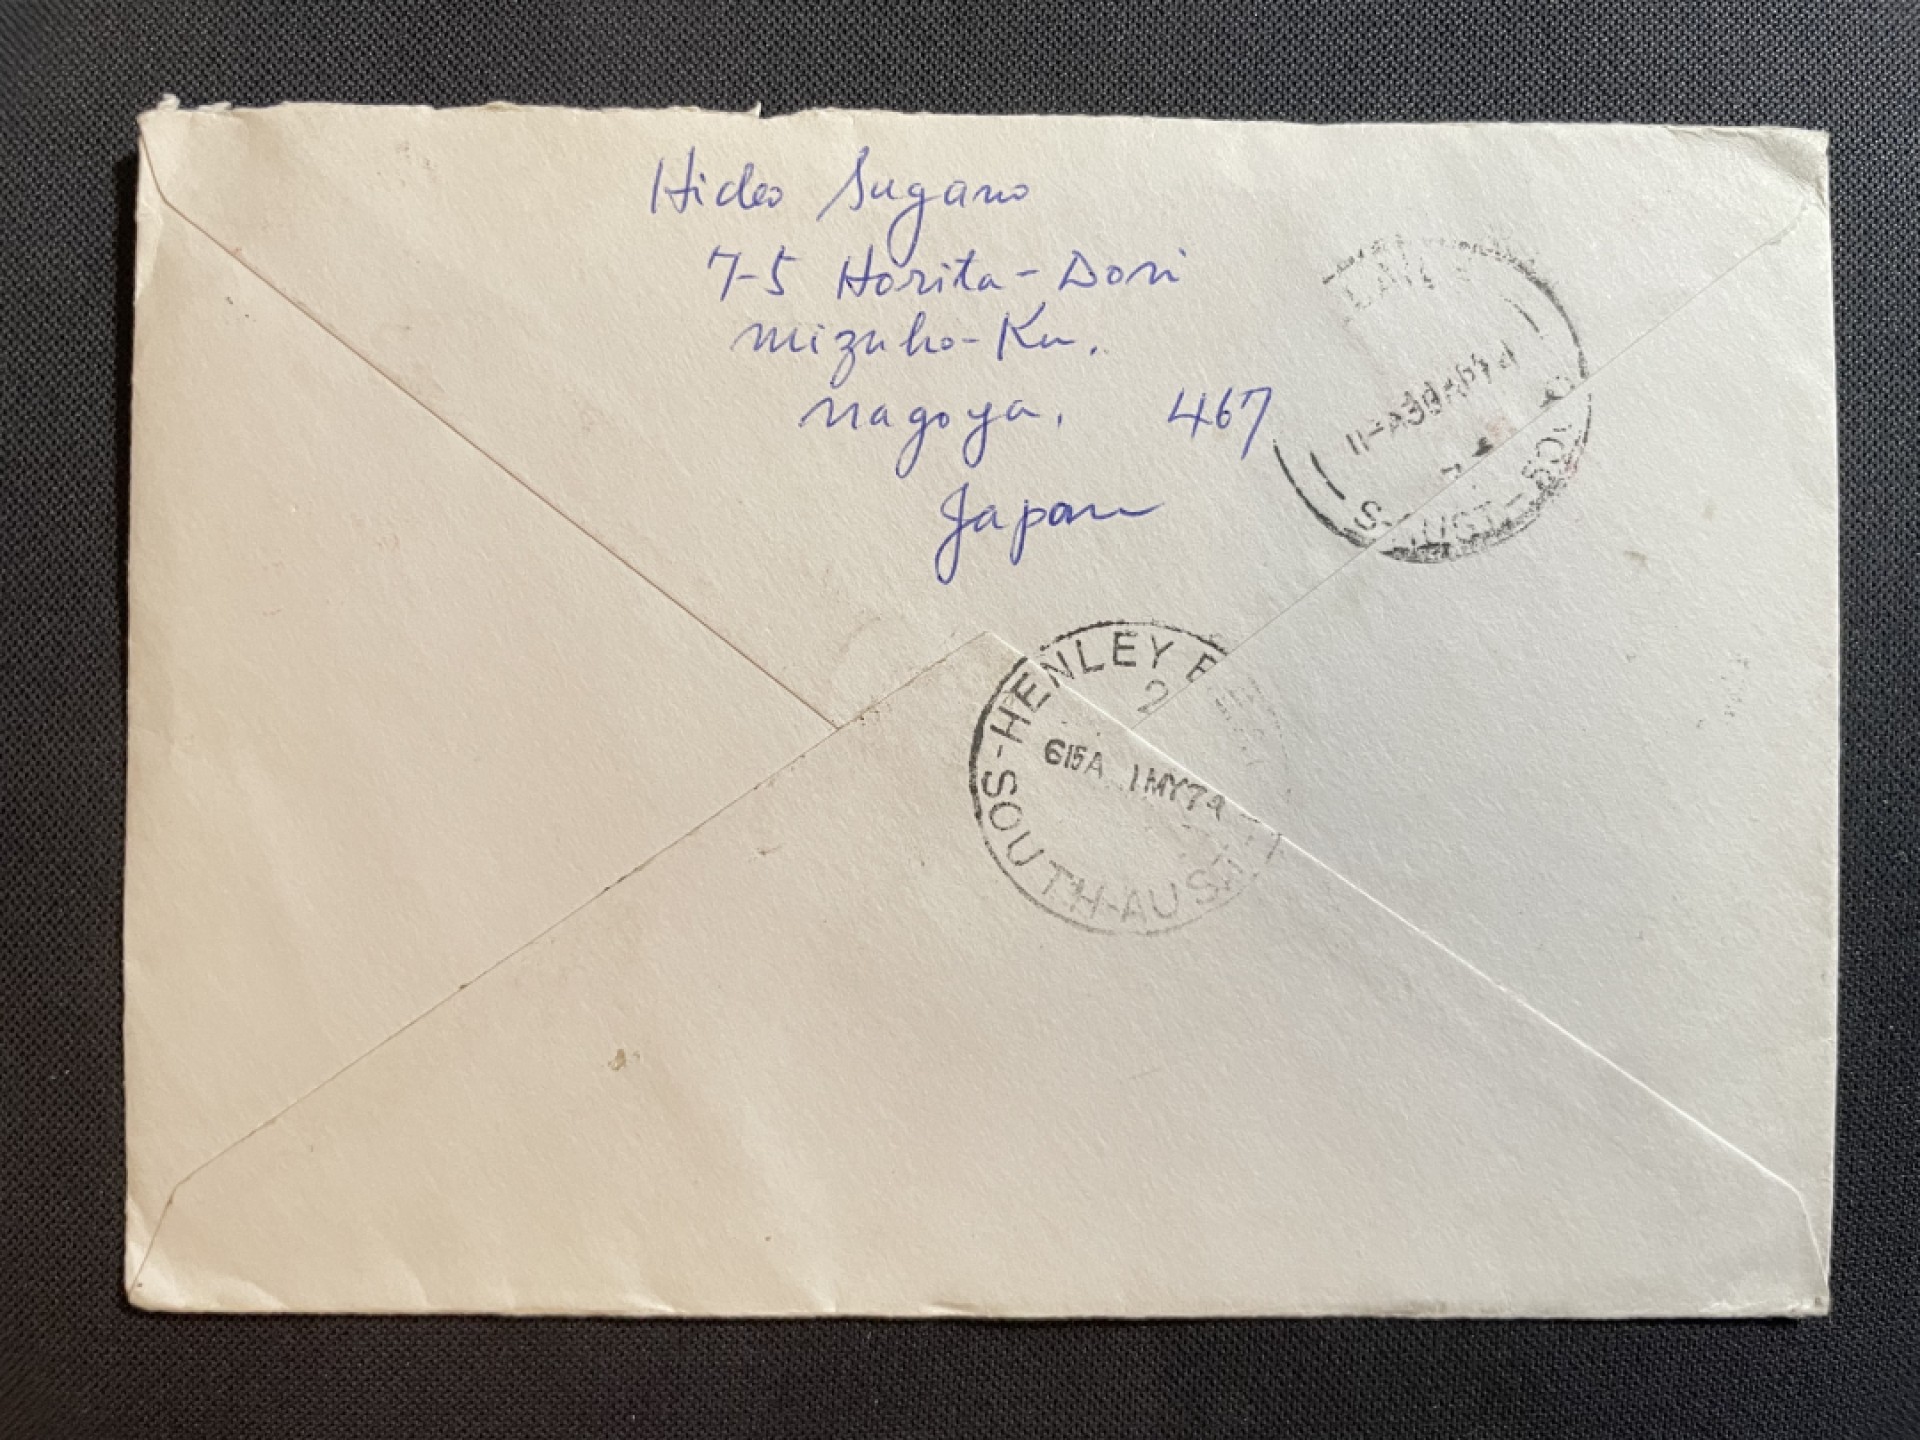 Hideo Sugano
7-5 Horita-Dori
Mizuho-Ku.
Nagoya. 467
Japan
S. AUST-50
HENLEY
2
615A 1MY79
SOUTH-AUST